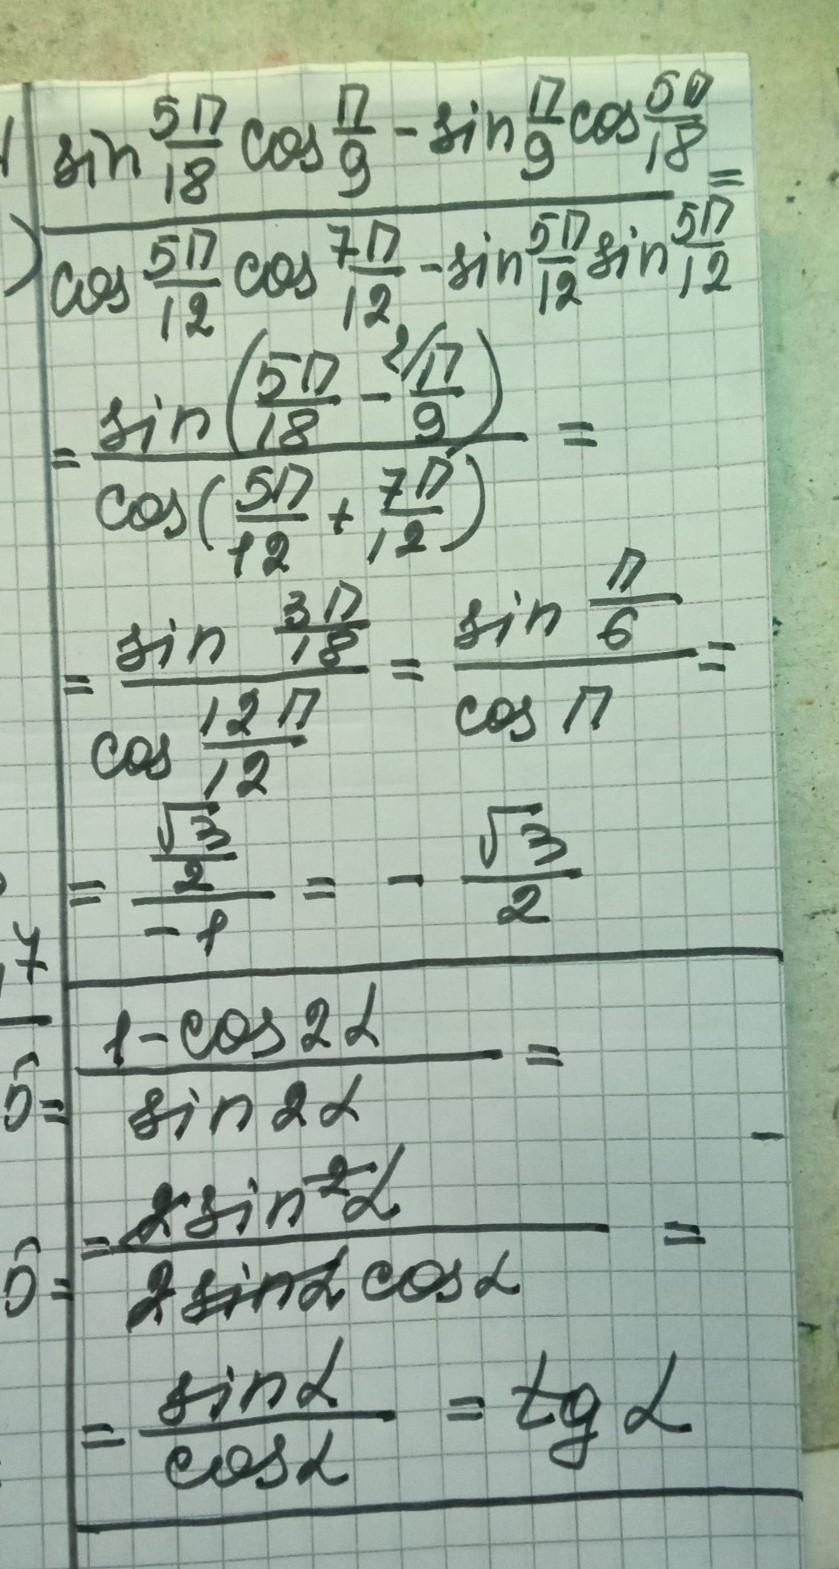 sin 5π/18 cos π/9 - sin π/9 cos 5π/18 =
cos 5π/12 cos 7π/12 - sin 5π/12 sin 5π/12
= sin (5π/18 - 2/π/9) =
cos (5π/12 + 7π/12)
= sin 3π/18 = sin π/6 =
cos 12π/12 cos π
= √3/2 = - √3/2
-1
1 - cos 2α =
sin 2α
= 2 sin²α =
2 sin α cos α
= sin α = tg α
cos α